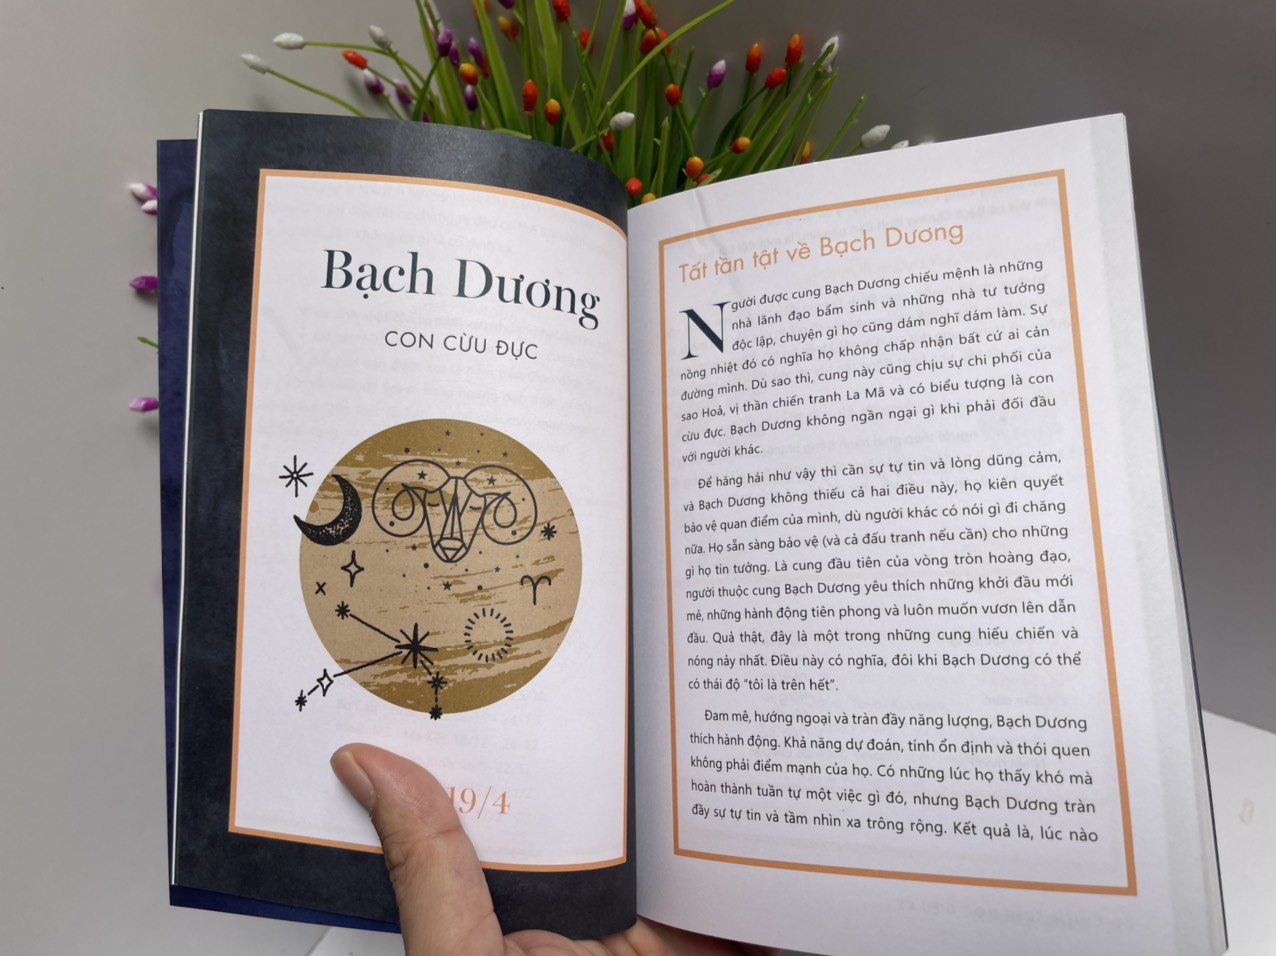 Bạch Dương
CON CỪU ĐỰC
19/4
Tất tần tật về Bạch Dương
Người được cung Bạch Dương chiếu mệnh là những
nhà lãnh đạo bẩm sinh và những nhà tư tưởng
độc lập, chuyện gì họ cũng dám nghĩ dám làm. Sự
nồng nhiệt đó có nghĩa họ không chấp nhận bất cứ ai cản
đường mình. Dù sao thì, cung này cũng chịu sự chi phối của
sao Hoả, vị thần chiến tranh La Mã và có biểu tượng là con
cừu đực. Bạch Dương không ngần ngại gì khi phải đối đầu
với người khác.
Để hăng hái như vậy thì cần sự tự tin và lòng dũng cảm,
và Bạch Dương không thiếu cả hai điều này, họ kiên quyết
bảo vệ quan điểm của mình, dù người khác có nói gì đi chăng
nữa. Họ sẵn sàng bảo vệ (và cả đấu tranh nếu cần) cho những
gì họ tin tưởng. Là cung đầu tiên của vòng tròn hoàng đạo,
người thuộc cung Bạch Dương yêu thích những khởi đầu mới
mẻ, những hành động tiên phong và luôn muốn vươn lên dẫn
đầu. Quả thật, đây là một trong những cung hiếu chiến và
nóng nảy nhất. Điều này có nghĩa, đôi khi Bạch Dương có thể
có thái độ "tôi là trên hết".
Đam mê, hướng ngoại và tràn đầy năng lượng, Bạch Dương
thích hành động. Khả năng dự đoán, tính ổn định và thói quen
không phải điểm mạnh của họ. Có những lúc họ thấy khó mà
hoàn thành tuần tự một việc gì đó, nhưng Bạch Dương tràn
đầy sự tự tin và tầm nhìn xa trông rộng. Kết quả là, lúc nào